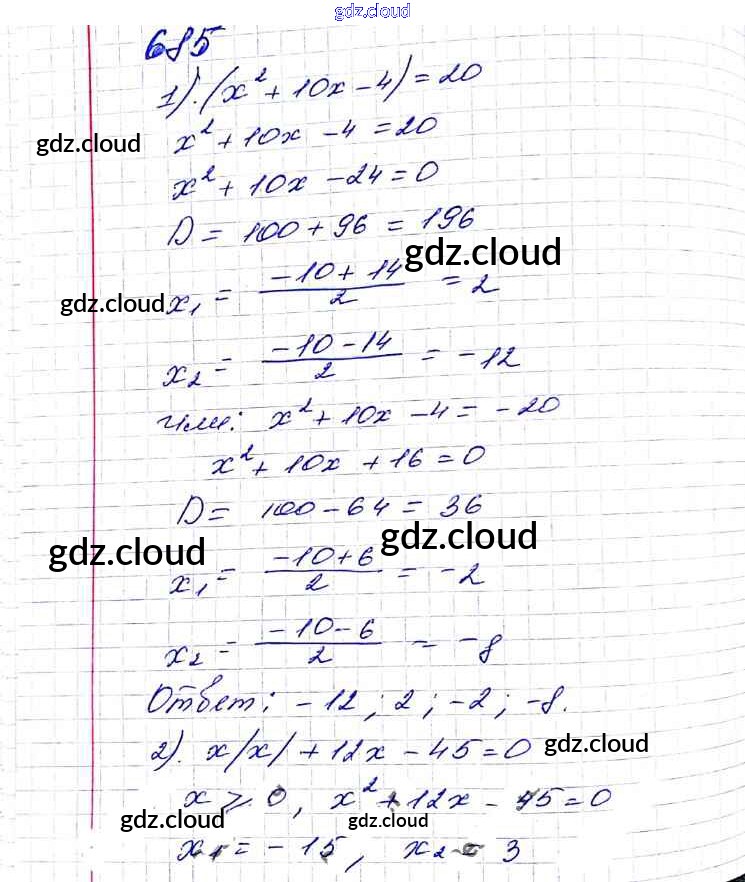 gdz.cloud
685
1). (x² + 10x - 4) = 20
gdz.cloud x² + 10x - 4 = 20
x² + 10x - 24 = 0
D = 100 + 96 = 196
gdz.cloud
gdz.cloud x₁ = (-10 + 14)/2 = 2
x₂ = (-10 - 14)/2 = -12
или: x² + 10x - 4 = -20
x² + 10x + 16 = 0
D = 100 - 64 = 36
gdz.cloud gdz.cloud
x₁ = (-10 + 6)/2 = -2
x₂ = (-10 - 6)/2 = -8
Ответ: -12; 2; -2; -8.
2). x/x/ + 12x - 45 = 0 gdz.cloud
x ⩾ 0, x² + 12x - 45 = 0
gdz.cloud gdz.cloud
x₁ = -15, x₂ = 3